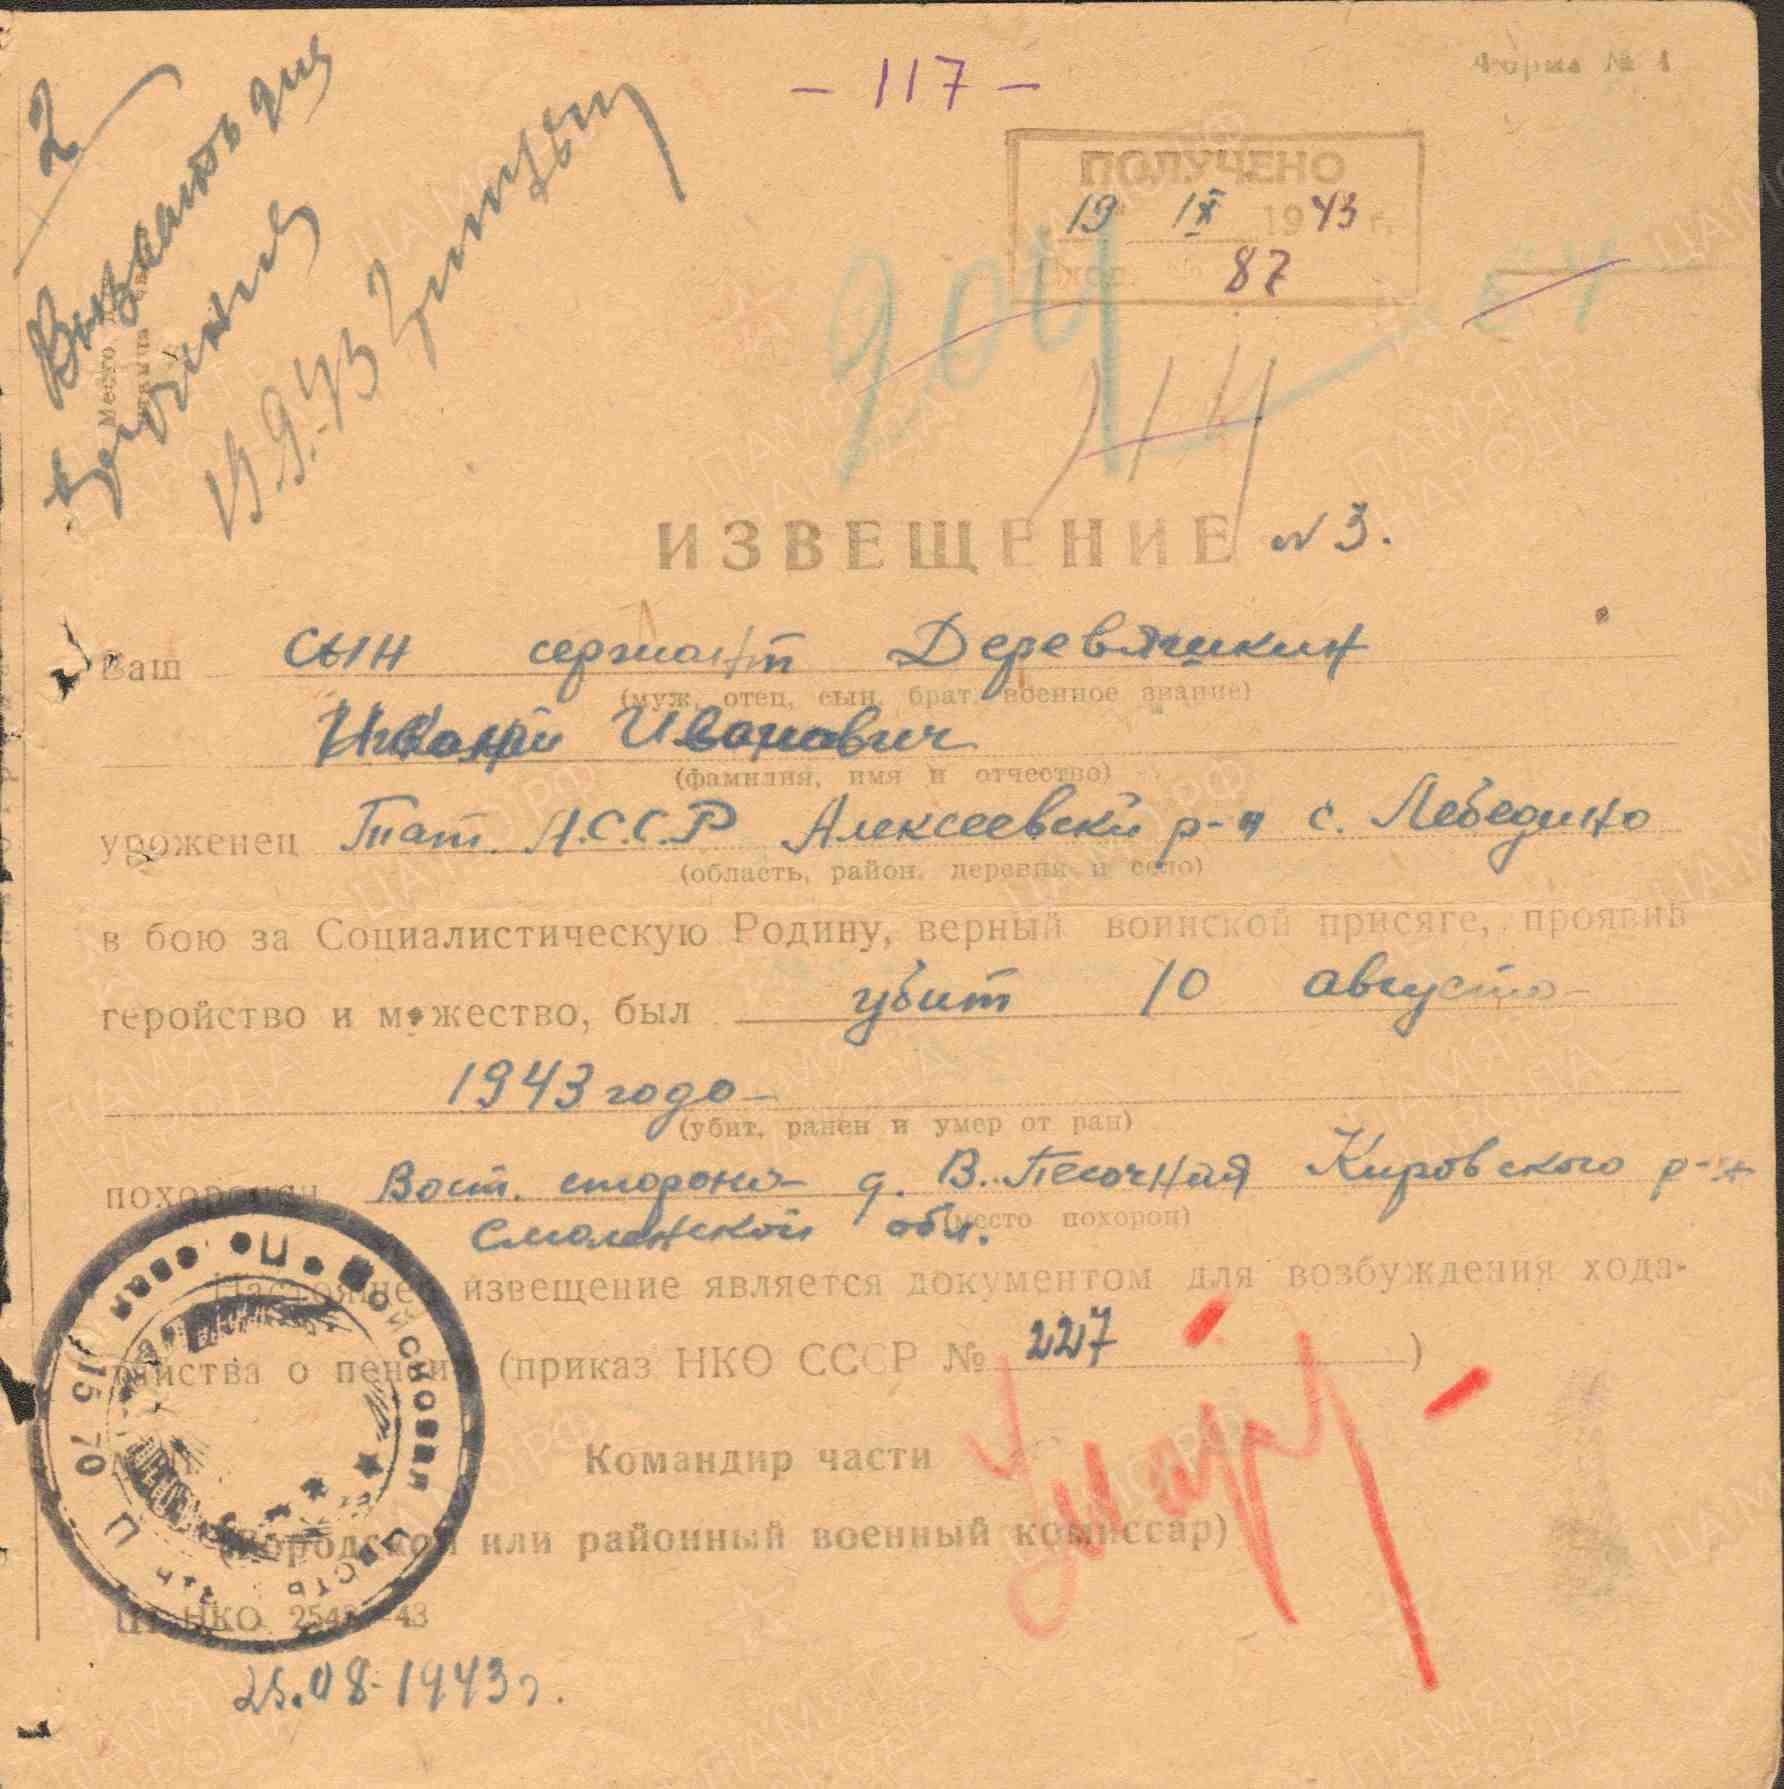 Форма № 1
- 117 -
2
ПОЛУЧЕНО
19 IX 1943 г.
87
204
Вызвать для
19.9.43
ИЗВЕЩЕНИЕ № 3.
Ваш сын сержант Деревяшкин
(муж, отец, сын, брат, военное звание)
Иванович
(фамилия, имя и отчество)
уроженец Тат. А.С.С.Р Алексеевский р-н с. Лебедино
(область, район, деревня и село)
в бою за Социалистическую Родину, верный воинской присяге, проявив
геройство и мужество, был убит 10 августа
1943 года
(убит, ранен и умер от ран)
похоронен Вост. сторона д. В. Песочная Кировского р-н
Смоленской обл.
(место похорон)
Настоящее извещение является документом для возбуждения хода-
тайства о пенсии (приказ НКО СССР № 227 )
Командир части
(Городской или районный военный комиссар)
НКО 43
25.08.1943 г.